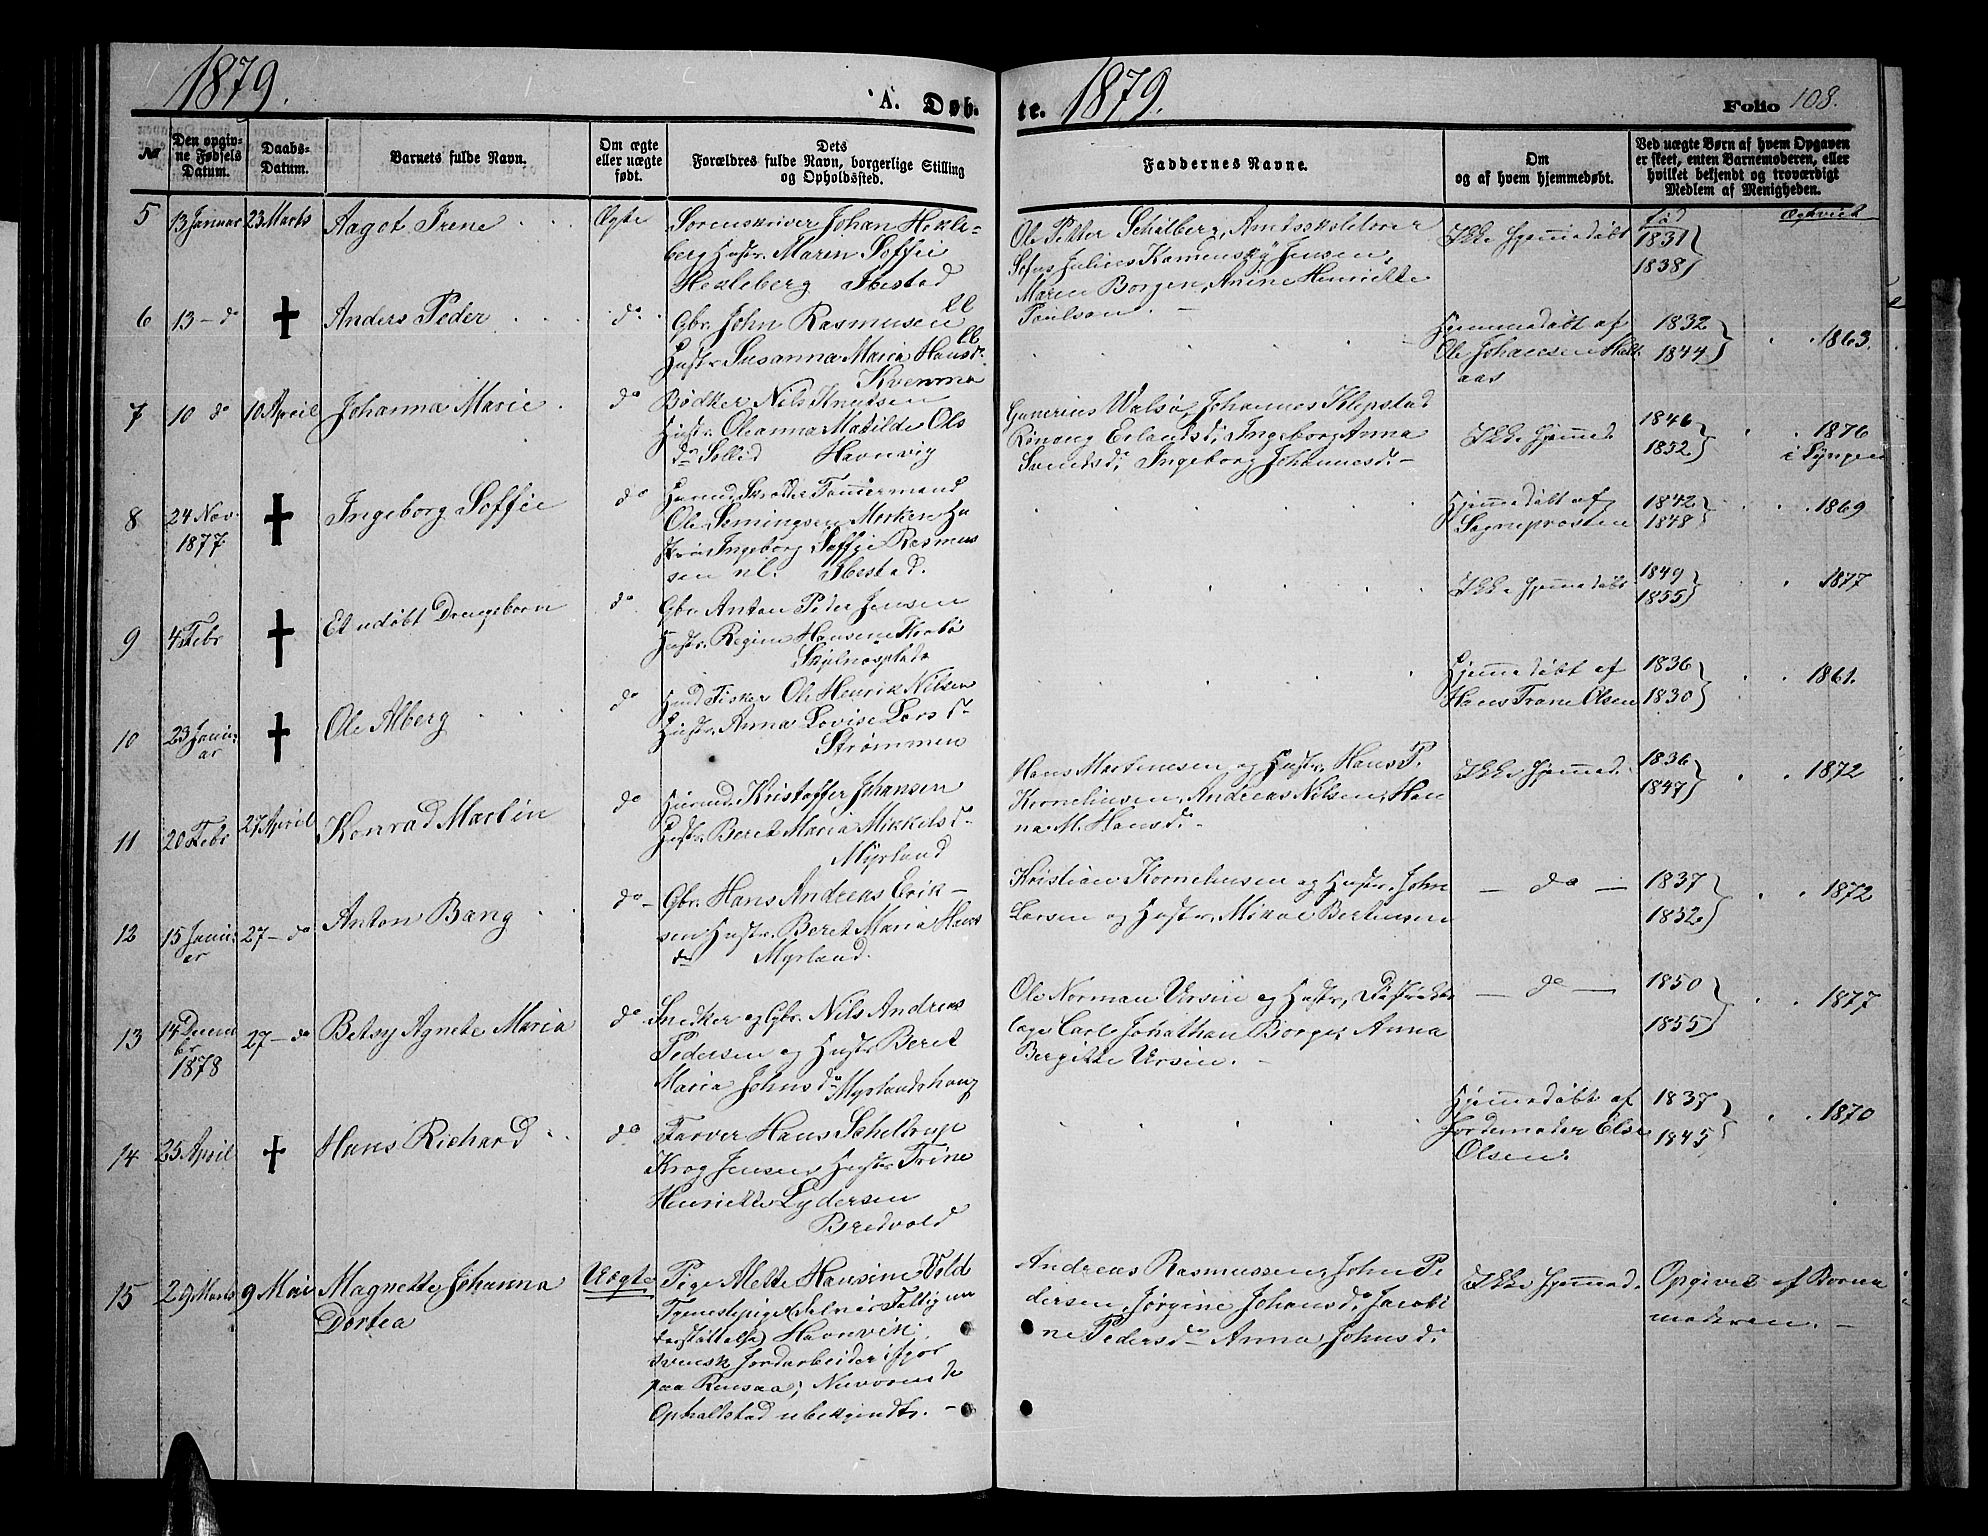 1879.
A. Døb-
te.
1879.
Folio 108.
№
Den opgiv-
ne Fødsels
Datum.
Daabs-
Datum.
Barnets fulde Navn.
Om ægte
eller uægte
født.
Dets
Forældres fulde Navn, borgerlige Stilling
og Opholdssted.
Faddernes Navne.
Om
og af hvem hjemmedøbt.
Ved uægte Børn af hvem Opgaven
er skeet, enten Barnemoderen, eller
hvilket bekjendt og troværdigt
Medlem af Menigheden.
fød
Ægteviet
5
13 Januar
23 Marts
Aagot Irene
Ægte
Sorenskriver Johan Hekle-
berg Hustr. Maren Soffie
Hekleberg Ibestad
Ole Petter Schølberg, Amtsskolelærer
Sofus Julius Kamensky Jensen,
Maren Borgen, Anine Henriette
Poulson. –
Ikke Hjemmedøbt
1831
1838
6
13 – do
✝
Anders Peder
do
Gbr. John Rasmusen
Hustr. Susanna Maria Hansd.
Kvenmo
Hjemmedøbt af
Ole Johansen Hall-
aas
1832
1844
1863.
7
10 do
10 April
Johanna Marie
do
Bødker Nils Knudsen
Hustr. Oleanna Matilde Ols
dr Havnvig
Gunerius Valsø, Johannes Klepstad
Rønnaug Erlandsd., Ingeborg Anna
Svendsd., Ingeborg Johannesd. –
Ikke Hjemmed.
1846
1852
1876
i Lyngen
8
24 Nov.
1877.
✝
Ingeborg Soffie
do
Ole Semingsen Merken Hu
str. Ingeborg Soffie Rasmus
sen Ibestad.
Hjemmedøbt af
Sogneprosten
1842
1848
1869
9
4 Febr
✝
Et udøbt Drengebarn
do
Gbr. Anton Peder Jensen
Hustr. Regine Hansine Krobø
Skjelnesplads
Ikke Hjemmedøbt
1849
1855
1877
10
23 Janu-
ar
✝
Ole Alberg
do
Husmd Fisker Ole Henrik Nilsen
Hustr. Anna Lovise Larsdr
Strømmen
Hjemmedøbt af
Hans Trane Olsen
1836
1830
1861.
11
20 Febr
27 April
Konrad Martin
do
Husmd. Kristoffer Johansen
Hustr. Beret Maria Mikkelsd.
Myrland
Hans Martinesen og Hustr. Hans P.
Kornelinsen, Andreas Nilsen, Han
na M. Hansd. –
Ikke Hjemmed.
1836
1847
1872
12
15 Janu-
er
27 – do
Anton Bang
do
Gbr. Hans Andreas Erik-
sen Hustr. Beret Maria Hans
dr Myrland.
Kristian Kornelinsen og Hustr. John
Larsen og Hustr. Mikal Bertinsen
– do –
1837
1832
1872
13
14 Decem
br
1878
27 – do
Betsy Agnete Maria
do
Snekker og Gbr. Nils Andreas
Pedersen og Hustr Beret
Maria Johnsdr Myrlandshaug
Ole Norman Ursin og Hustr,
Carl Jonathan Borge, Anna
Bergitte Ursin. –
– do –
1850
1855
1877
14
25 April
✝
Hans Richard
do
Farver Hans Scheldrup
Krog Jensen Hustr Trine
Henriette Lydersen
Bredvold
Hjemmedøbt af
Jordemoder Else
Olsen.
1837
1845
1870
15
29 Marts
9 Mai
Magnette Johanna
Dortea
Uægte
Pige Mette Hansine Vold
Tjenestepige
Havnvik.
svensk Jordarbeider
paa Rensaa; Nuværende
Opholdstad ubekjendt. –
Andreas Rasmussen, John Pe
dersen, Jørgine Johansdr Jacobi
ne Pedersdr Anna Johnsd.
Ikke Hjemmed.
Opgivet af Barne
moderen. –